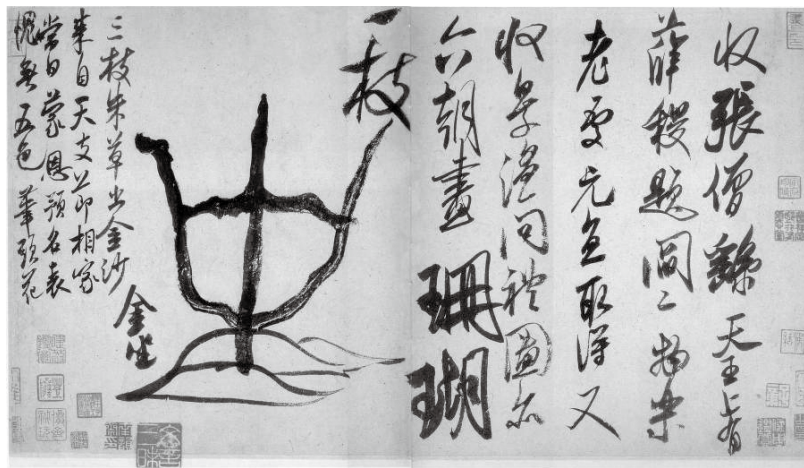 收張僧繇天王上有
薛稷題閻二物樂
老處元直取得又
收景温問禮圖亦
六朝畫珊瑚
一枝
金坐
三枝朱草出金沙
來自天支節相家
當日蒙恩預名表
愧無五色筆頭花